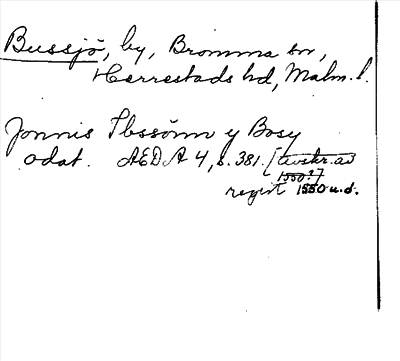 Bussjö, by, Bromma sn,
Herrestads hd, Malm. l.
Jonnis Ibssönn y Bosy
odat. AEDA 4, s. 381. [avskr. av
1550?]
regist 1550 u.d.